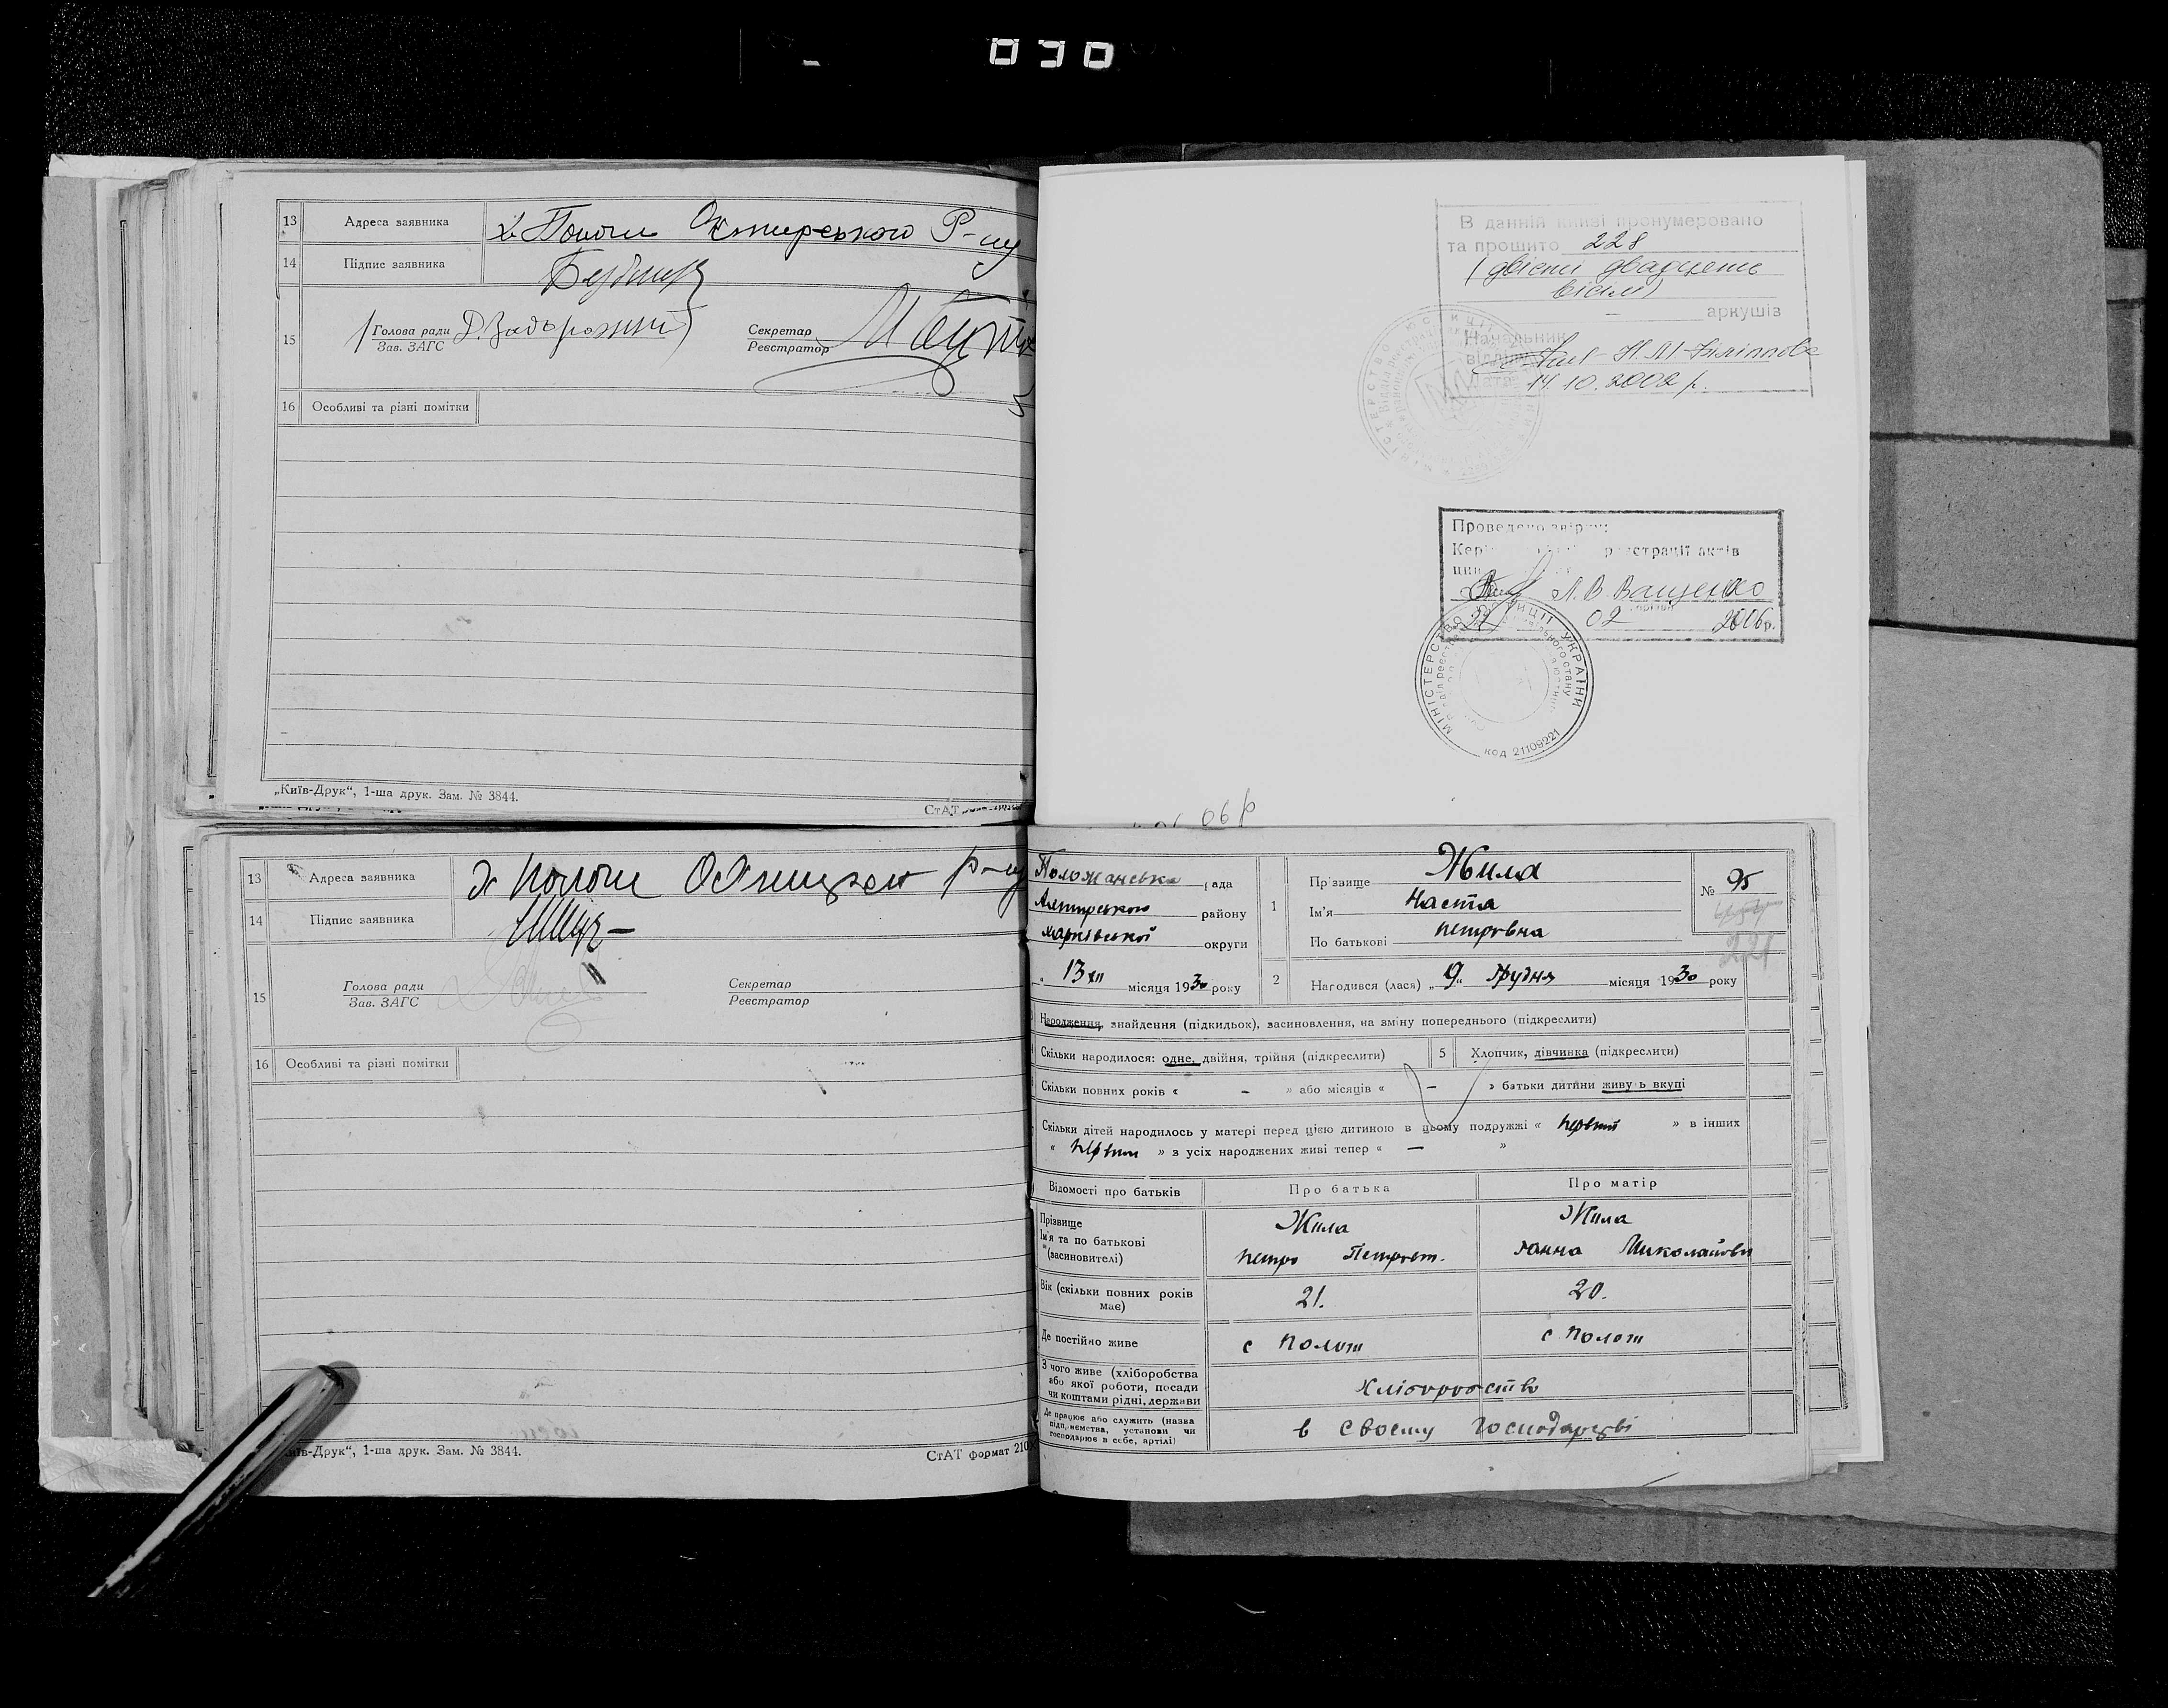 030
13 Адреса заявника х. Пологи Охтирського Р-ну
14 Підпис заявника
15 Голова ради Д. Задорожний Секретар
Зав. ЗАГС Реєстратор
16 Особливі та різні помітки
„Київ-Друк“, 1-ша друк. Зам. № 3844.
СтАТ
В данній книзі пронумеровано
та прошито 228
(двісті двадцять
вісім)
аркушів
Начальник
відділу
Дата 14.10.2002 р.
Проведено звірку
реєстрації актів
Л.В. Ващенко
02 2006р.
МІНІСТЕРСТВО ЮСТИЦІЇ УКРАЇНИ
код 21109221
06 р
13 Адреса заявника х Пологи Р-ну
14 Підпис заявника
15 Голова ради Секретар
Зав. ЗАГС Реєстратор
16 Особливі та різні помітки
Київ-Друк“, 1-ша друк. Зам. № 3844.
СтАТ формат 210
Положанська рада
району
округи
13 XII місяця 1930 року
1 Прізвище Жила
Ім'я Настя
По батькові Петровна
№ 95
221
2 Народився (лася) „9„ Грудня місяця 1930 року
Народження, знайдення (підкидьок), засиновлення, на зміну попереднього (підкреслити)
Скільки народилося: одне, двійня, трійня (підкреслити) 5 Хлопчик, дівчинка (підкреслити)
Скільки повних років « – » або місяців « – » батьки дитини живуть вкупі
Скільки дітей народилось у матері перед цією дитиною в цьому подружжі « первий » в інших
« » з усіх народжених живі тепер « – »
Відомості про батьків Про батька Про матір
Прізвище Жила Жила
Ім'я та по батькові Петро Петрович. Ганна Миколаївн
(засиновителі)
Вік (скільки повних років має) 21. 20.
Де постійно живе с Полог с Полог
З чого живе (хліборобства
або якої роботи, посади
чи коштами рідні, держави хліборобство
Де працює або служить (назва
підприємства, установи чи
господарює в себе, артілі) в своєму господарстві